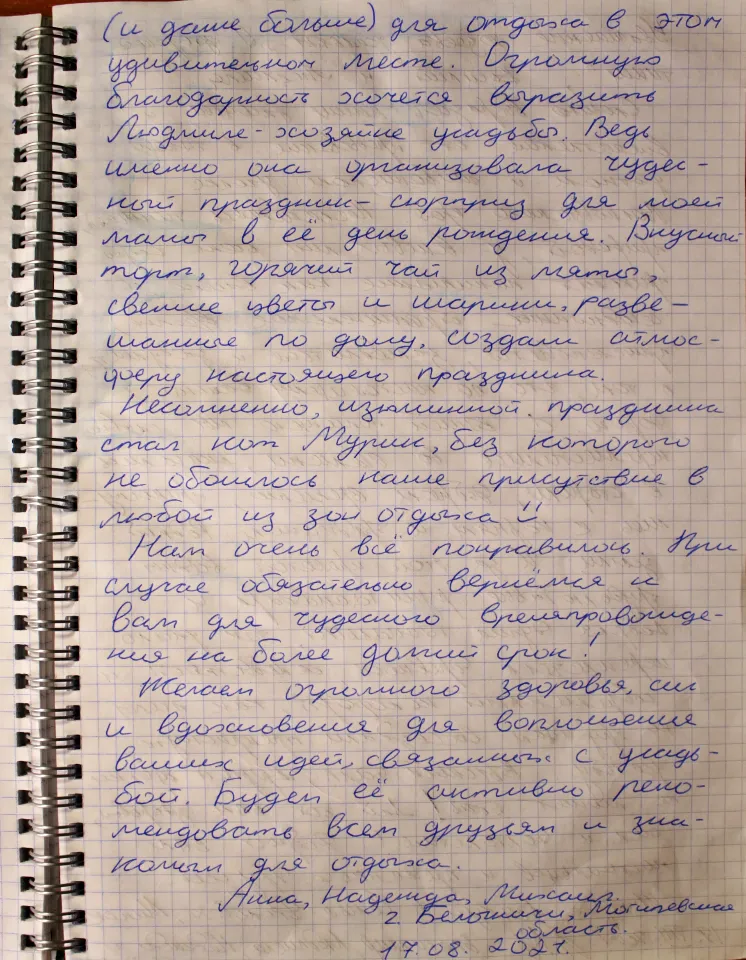 (и даже больше) для отдыха в этом
удивительном месте. Огромную
благодарность хочется выразить
Людмиле-хозяйке усадьбы. Ведь
именно она организовала чудес-
ный праздник-сюрприз для моей
мамы в её день рождения. Вкусный
торт, горячий чай из мяты,
свежие цветы и шарики, разве-
шанные по дому, создали атмос-
феру настоящего праздника.
Несомненно, изюминкой праздника
стал кот Мурик, без которого
не обошлось наше присутствие в
любой из зон отдыха
Нам очень всё понравилось. При
случае обязательно вернёмся к
вам для чудесного времяпровожде-
ния на более долгий срок!
Желаем огромного здоровья, сил
и вдохновения для воплощения
ваших идей, связанных с усадь-
бой. Будем её активно реко-
мендовать всем друзьям и зна-
комым для отдыха.
Анна, Надежда, Михаил.
г. Белыничи, Могилевская
область.
17.08.2021.